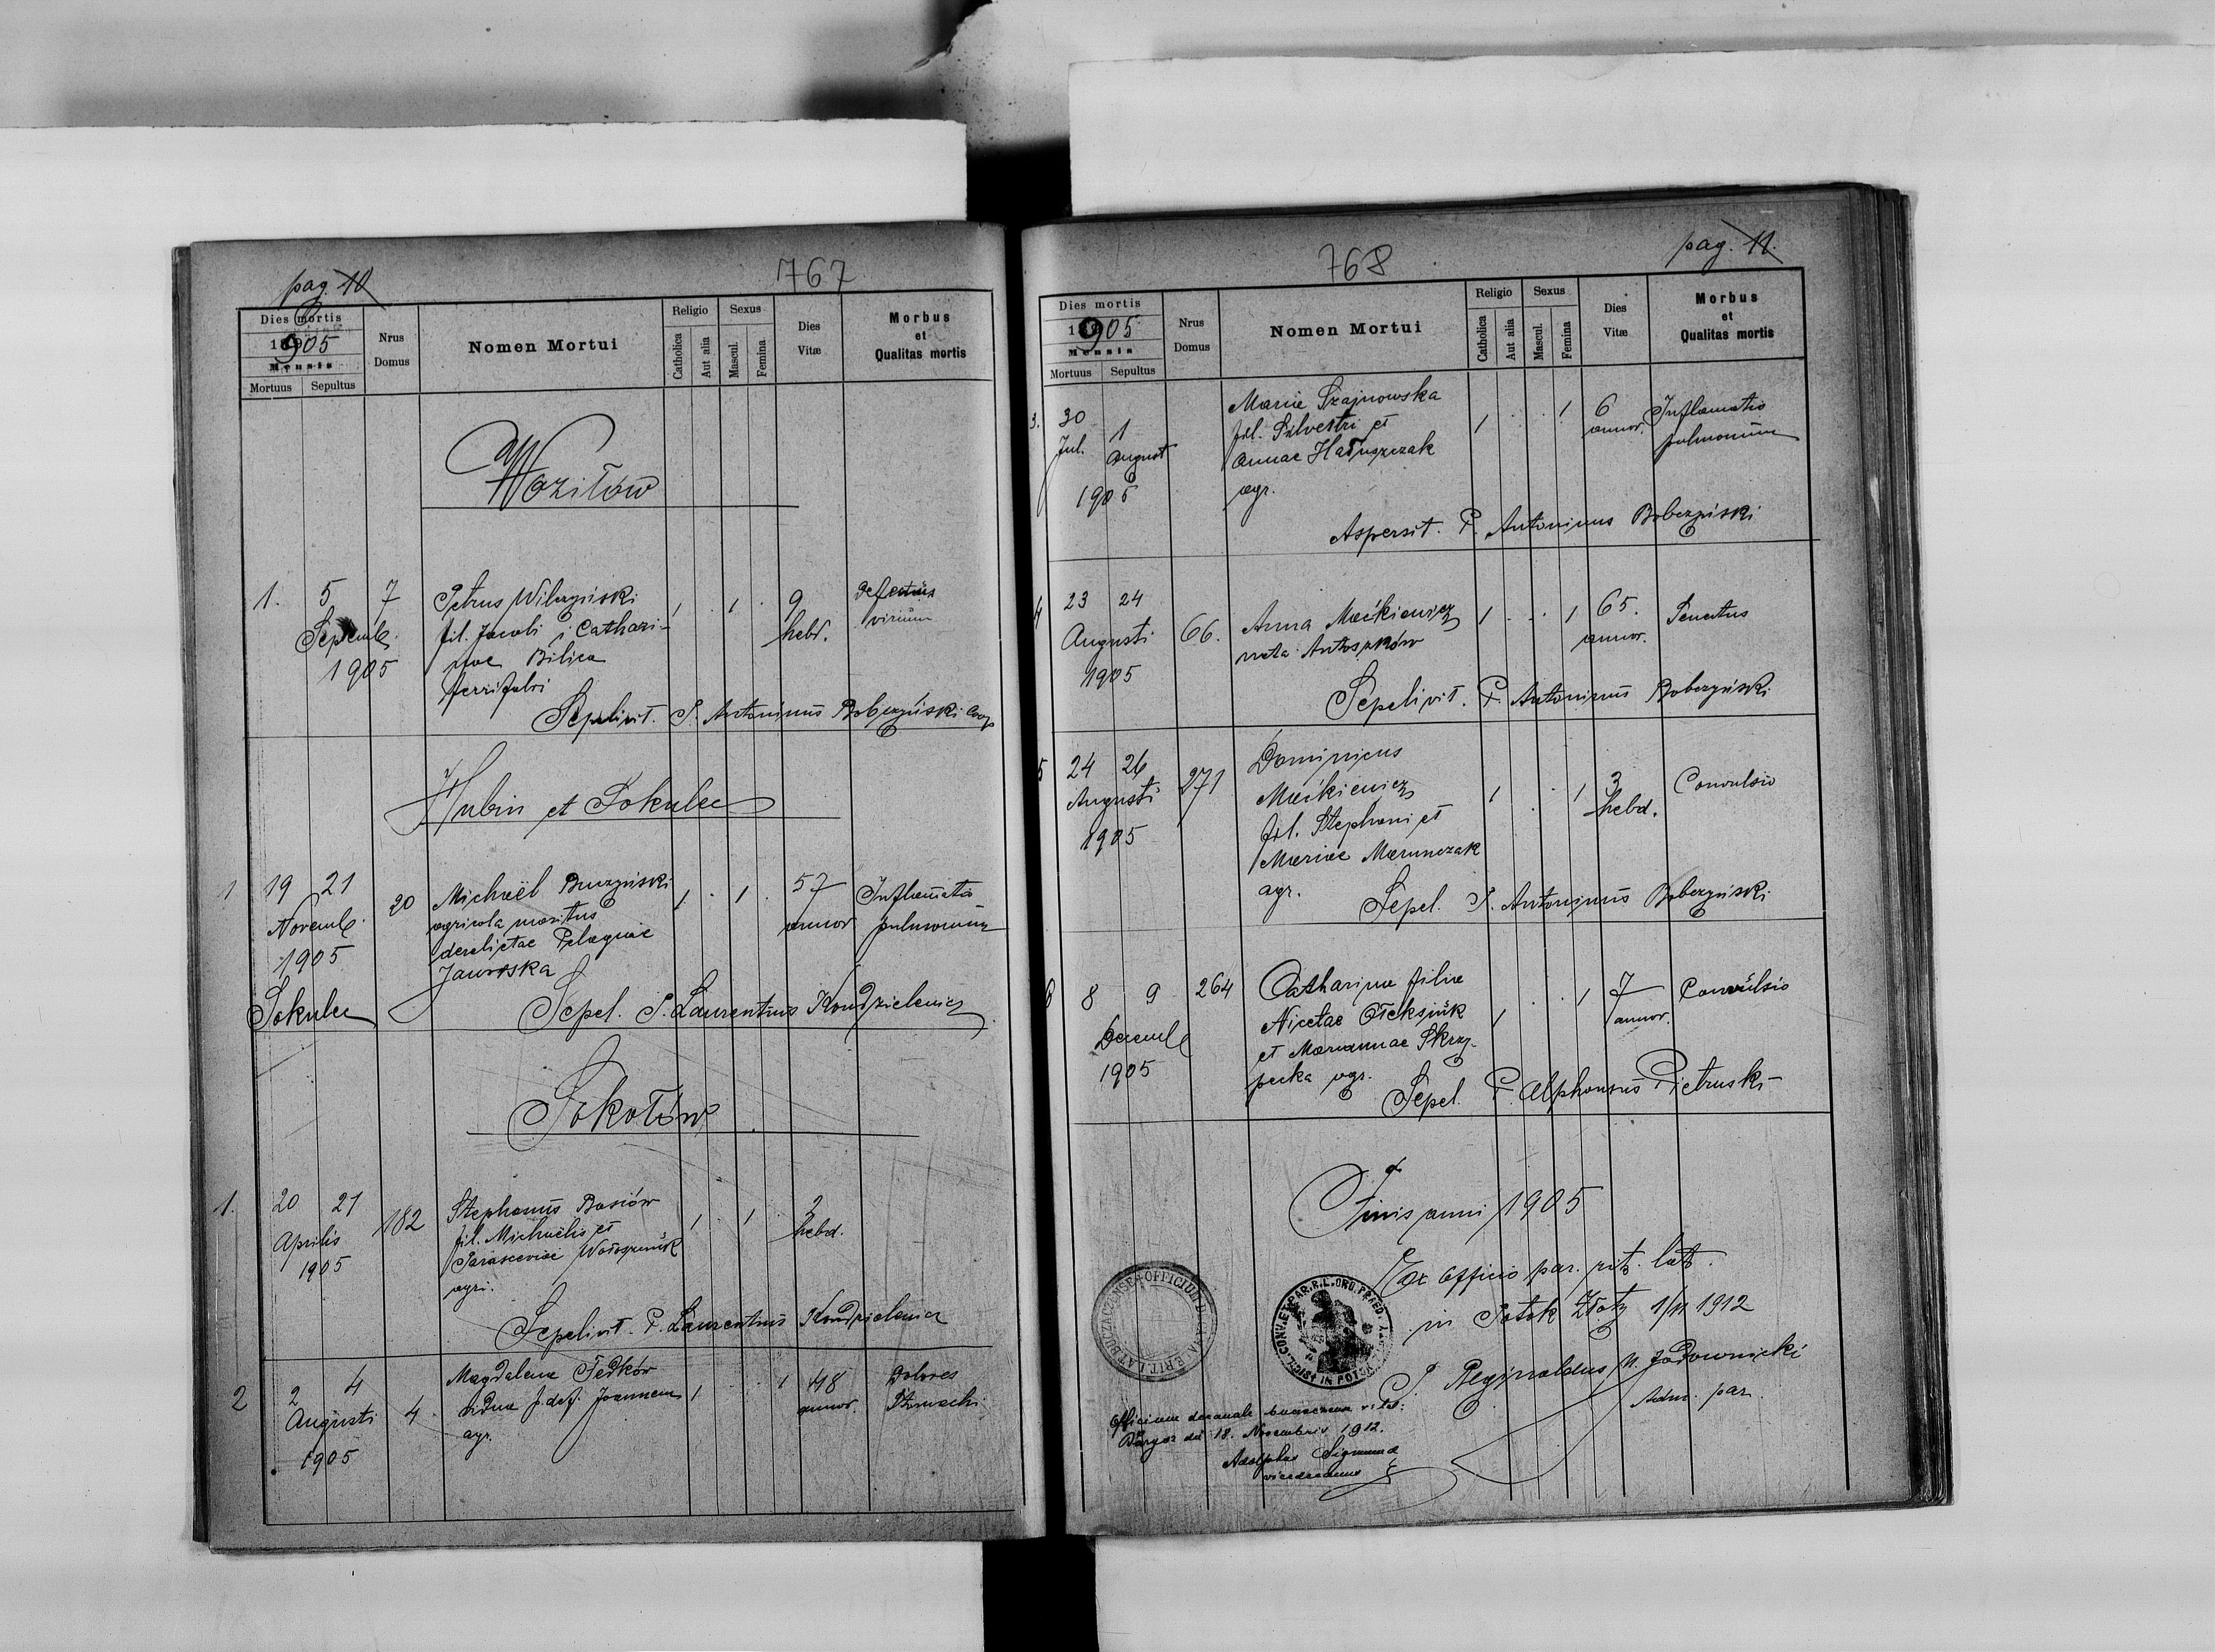 pag. 10
767
Dies mortis
1905
Mensis
Mortuus Sepultus
Nrus Domus
Nomen Mortui
Religio
Catholica
Aut alia
Sexus
Mascul.
Femina
Dies Vitæ
Morbus
et
Qualitas mortis
Woziłów
1. 5 7 Petrus Wilczyński 1 . 1 . 9 Defectus
Septemb. fil. Jacobi et Cathari- hebd. virium
1905 nae Bilica
ferrifabri
Sepelivit. P. Antoninus Bobczyński Coop
Hubin et Sokulec
1 19 21 20 Michaël Buczyński 1 . 1 . 57 Inflamatio
Novemb. agricola maritus annor pulmonum
1905 derelictae Pelagiae
Jaworska
Sokulec Sepel. P. Laurentius Kondzielewicz
Sokołów
1. 20 21 182 Stephanus Basiów 1 . 1 . 2
Aprilis fil. Michaëlis et hebd.
1905 Parasceviae Wołoszczuk
agri.
Sepelivit. P. Laurentius Kondzielewicz
2 2 4 4 Magdalena Fedków 1 . . 1 48 Dolores
Augusti vidua p. def. Joannem annor. stomachi
1905 agr.
768
pag. 11.
Dies mortis
1905
Mensis
Mortuus Sepultus
Nrus Domus
Nomen Mortui
Religio
Catholica
Aut alia
Sexus
Mascul.
Femina
Dies Vitæ
Morbus
et
Qualitas mortis
3. 30 1 Maria Szajnowska 1 . . 1 6 Inflamatio
Jul. August fil. Silvestri et annor. pulmonum
1905 Annae Hałuszczak
agr.
Aspersit. P. Antoninus Bobczyński
4 23 24 66. Anna Maćkiewicz 1 . . 1 65. Senectus
Augusti nata Antoszków annor.
1905
Sepelivit. P. Antoninus Bobczyński
5 24 26 271 Dominicus
Augusti Maćkiewicz 1 . . 1 3 Convulsio
1905 fil. Stephani et hebd.
Mariae Marunczak
agr.
Sepel. P. Antoninus Bobczyński
6 8 9 264 Catharina filia 1 . . 1 7 Convulsio
Decemb Nicetae Ołeksiuk annor.
1905 et Mariannae Skrzy-
pecka agr.
Sepel. P. Alphonsus Pietruski
Finis anni 1905
Ex officio par. rit. lat.
in Potok Złoty 1/11 1912
P. Reginaldus M. Jodownicki
Adm. par.
Officium decanale buczaczense r. lat.
Barysz die 18. Novembris 1912.
Adolphus Sigmund
vicedecanus